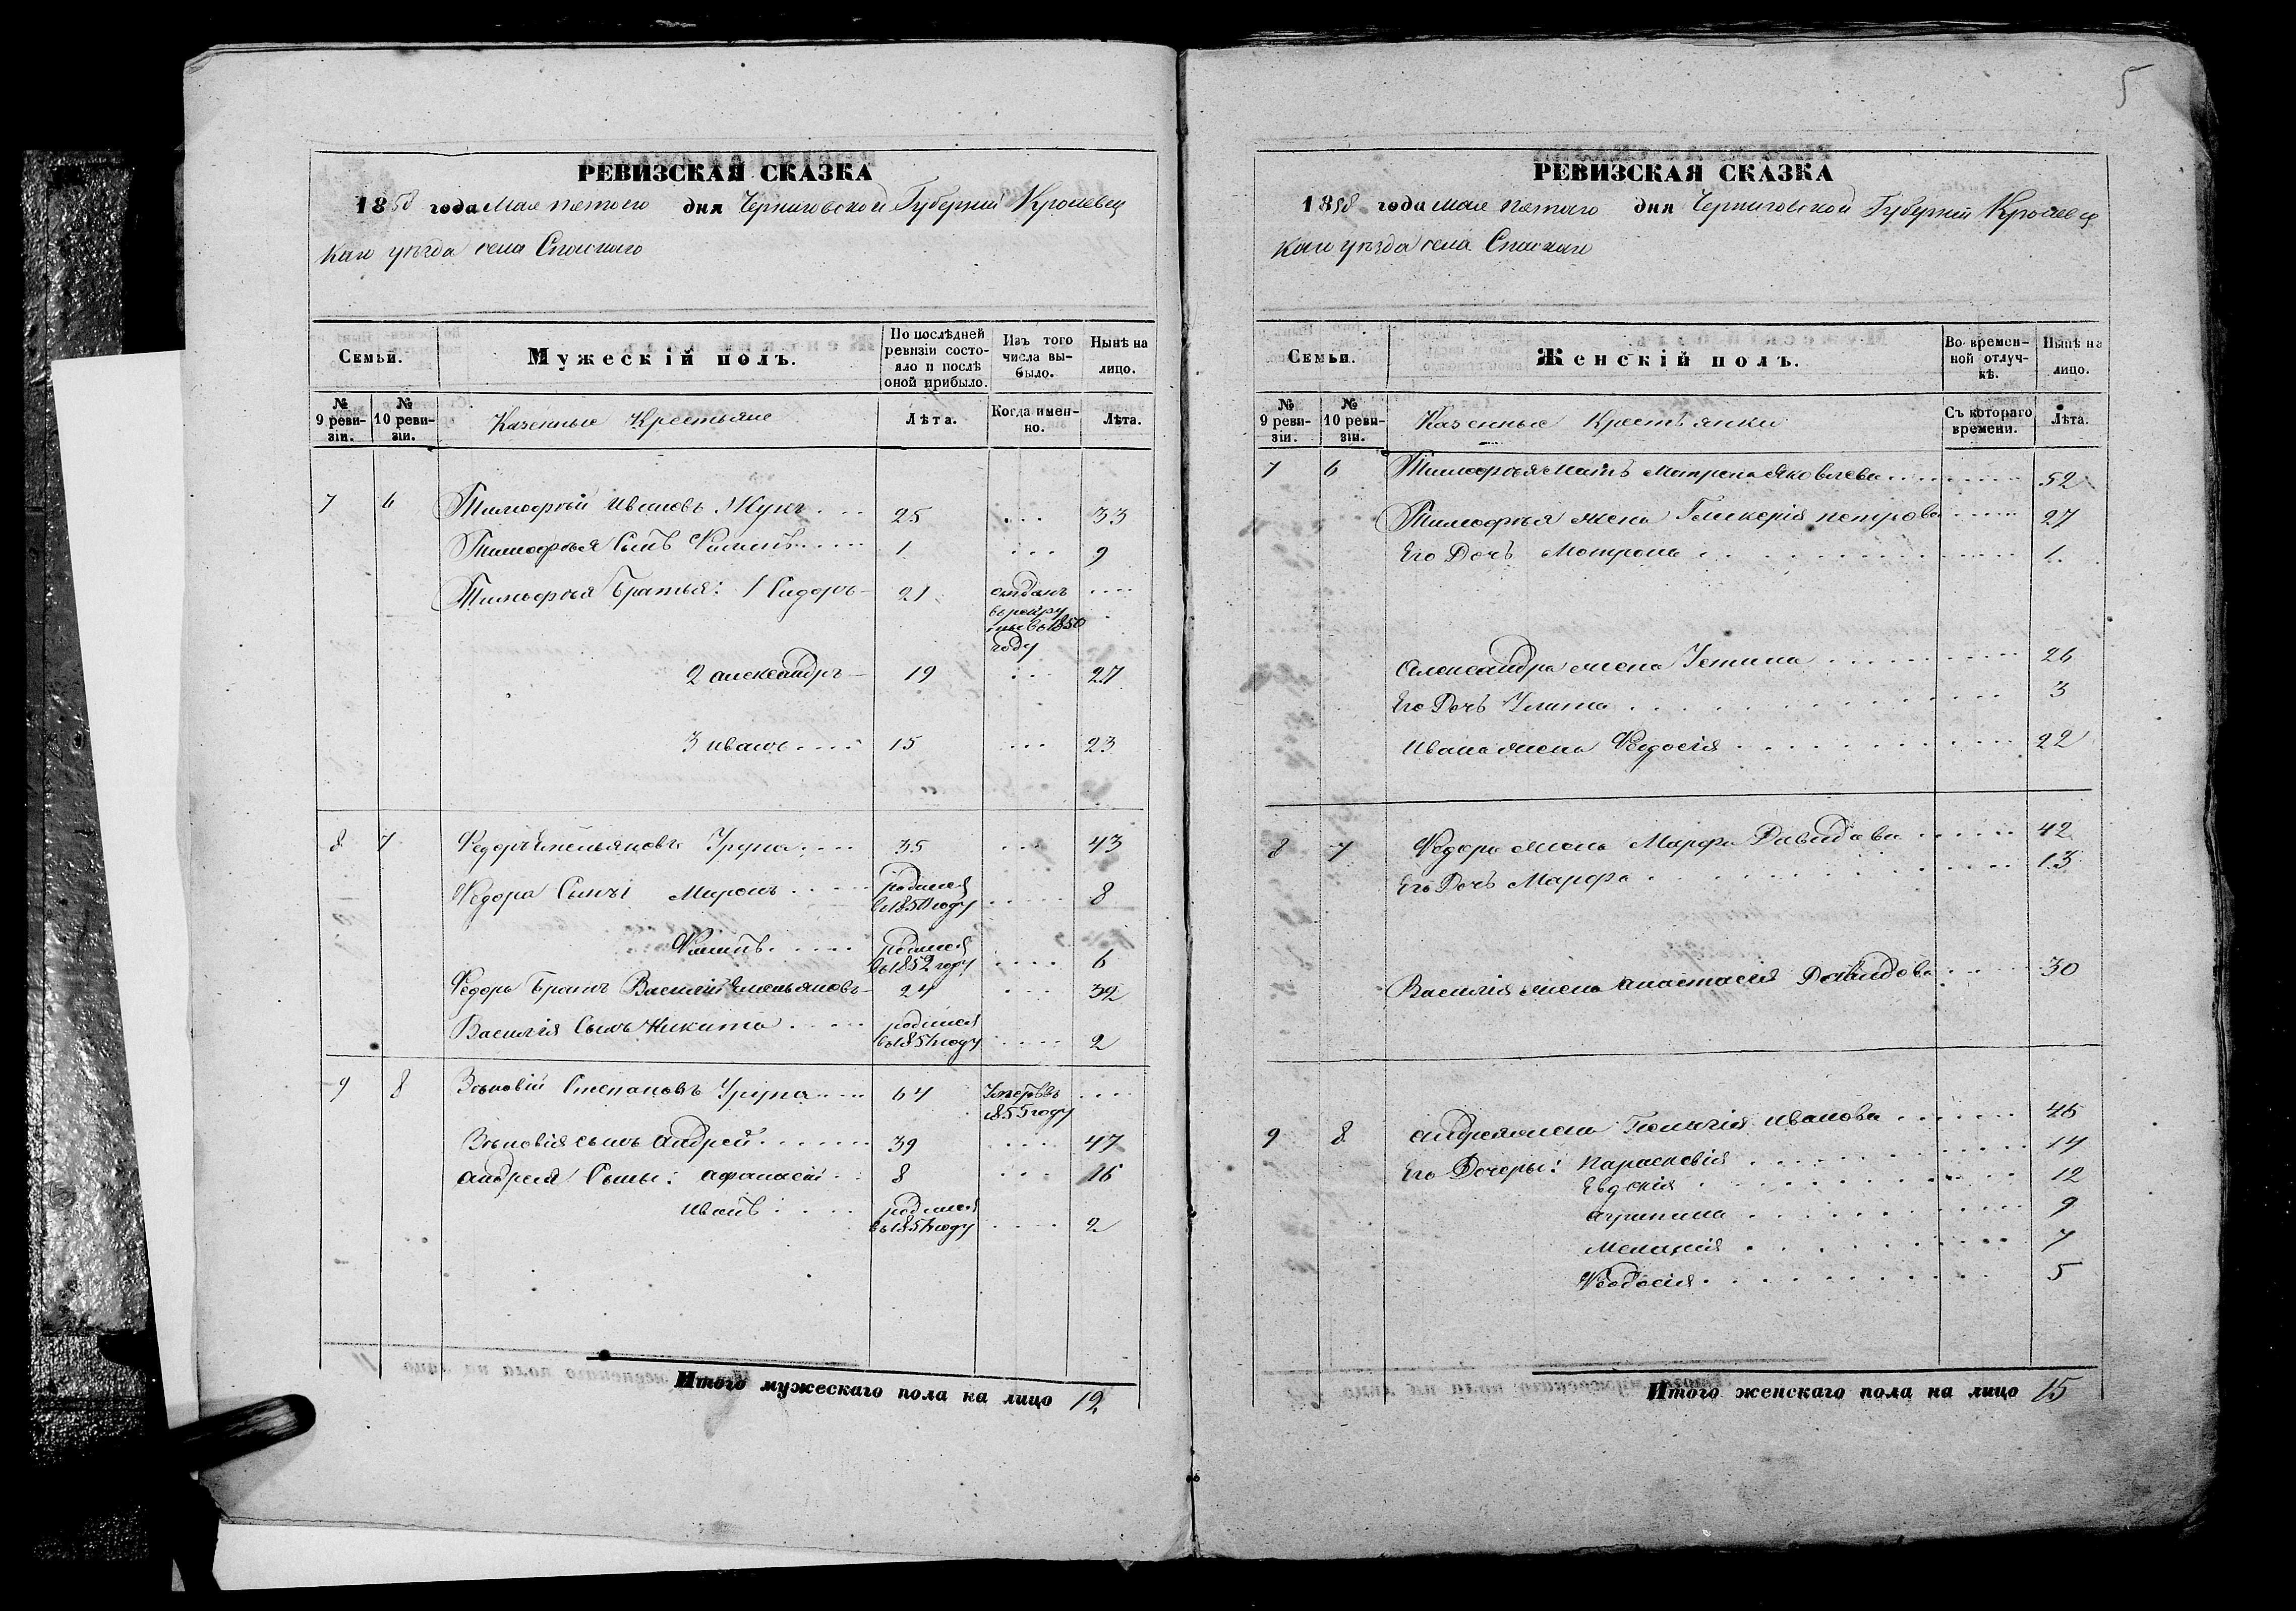 5
РЕВИЗСКАЯ СКАЗКА
1858 года Мая пятого дня Черниговской Губерніи Кролевец
каго уѣзда села Спаского
Семьи.
Мужескій полъ.
По послѣдней ревизіи состояло и послѣ оной прибыло.
Изъ того числа выбыло.
Нынѣ на лицо.
№ 9 ревизіи.
№ 10 ревизіи.
Казенные Крестьяне
Лѣта.
Когда именно.
Лѣта.
7 6 Тимофѣй Ивановъ Жукъ 25 33
Тимофѣя Сынъ Филипъ 1 9
Тимофѣя Братья: 1 Сидоръ 21 отданъ
въ рекру
ты въ 1850
году
2 александръ 19 27
3 иванъ 15 23
8 7 Федоръ Емельяновъ Урупа 35 43
Федора Сыны Миронъ родился
въ 1850 году 8
Филипъ родился
въ 1852 году 6
Федора Братъ Василій Емельяновъ 24 32
Василія Сынъ Никита родился
въ 1856 году 2
9 8 Зѣновій Степановъ Урупа 64 Умеръ въ
1855 году
Зѣновія сынъ Андрей 39 47
Андрея Сыны: афанасій 8 16
иванъ родился
въ 1856 году 2
Итого мужескаго пола на лицо 12
РЕВИЗСКАЯ СКАЗКА
1858 года мая пятого дня Черниговской Губерніи Кролевец
каго уѣзда села Спаского
Семьи.
Женскій полъ.
Во временной отлучкѣ.
Нынѣ на лицо.
№ 9 ревизіи.
№ 10 ревизіи.
Казенные Крестьянки
Съ котораго времени.
Лѣта.
7 6 Тимофѣя Мать Матрена Яковлева 52
Тимофѣя жена Гликерія петрова 27
Его Дочь Матрона 1
Александра жена Устина 26
Его Дочь Улита 3
Ивана жена Федосія 22
8 7 Федора жена Марфа Давидова 42
Его Дочь Марфа 13
Василія жена анастасія Давидова 30
9 8 андрея жена Пелагія иванова 46
Его Дочери: Параскевія 14
Евдокія 12
агрипина 9
Меланія 7
Феодосія 5
Итого женскаго пола на лицо 15